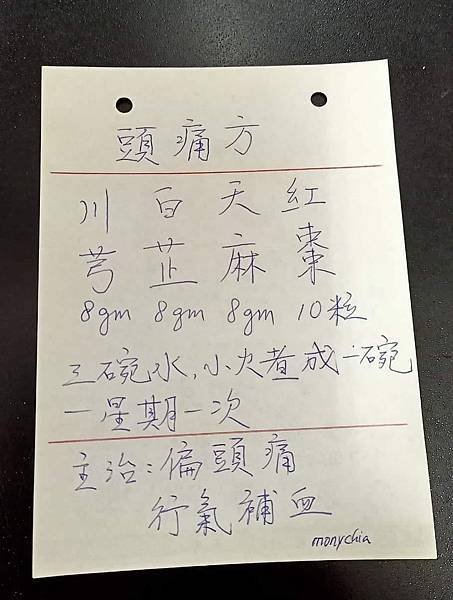 頭痛方
川芎 白芷 天麻 紅棗
8gm 8gm 8gm 10粒
三碗水,小火煮成一碗
一星期一次
主治:偏頭痛
行氣補血
monychia